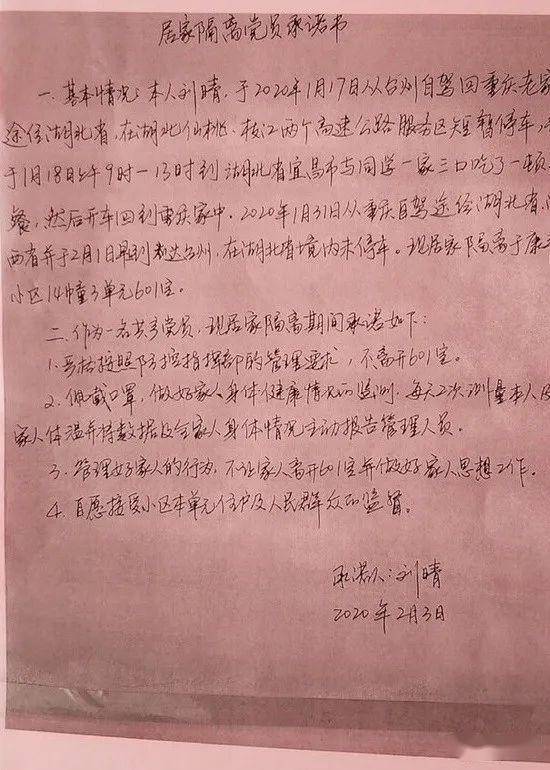 居家隔离党员承诺书
一、基本情况:本人刘晴,于2020年1月17日从台州自驾回重庆老家
途径湖北省,在湖北仙桃、枝江两个高速公路服务区短暂停车,
于1月18日上午9时-13时到湖北省宜昌市与同学一家三口吃了一顿
餐,然后开车回到重庆家中。2020年1月31日从重庆自驾途经湖北省、
两省并于2月1日早到达台州,在湖北省境内未停车。现居家隔离于康
小区14幢3单元601室。
二、作为一名共产党员,现居家隔离期间承诺如下:
1.严格按照防控指挥部的管理要求,不离开601室。
2.佩戴口罩,做好家人身体健康情况的监测,每天2次测量本人及
家人体温并将数据及全家人身体情况主动报告管理人员。
3.管理好家人的行为,不让家人离开601室并做好家人思想工作。
4.自愿接受小区本单元住户及人民群众的监督。
承诺人:刘晴
2020年2月3日